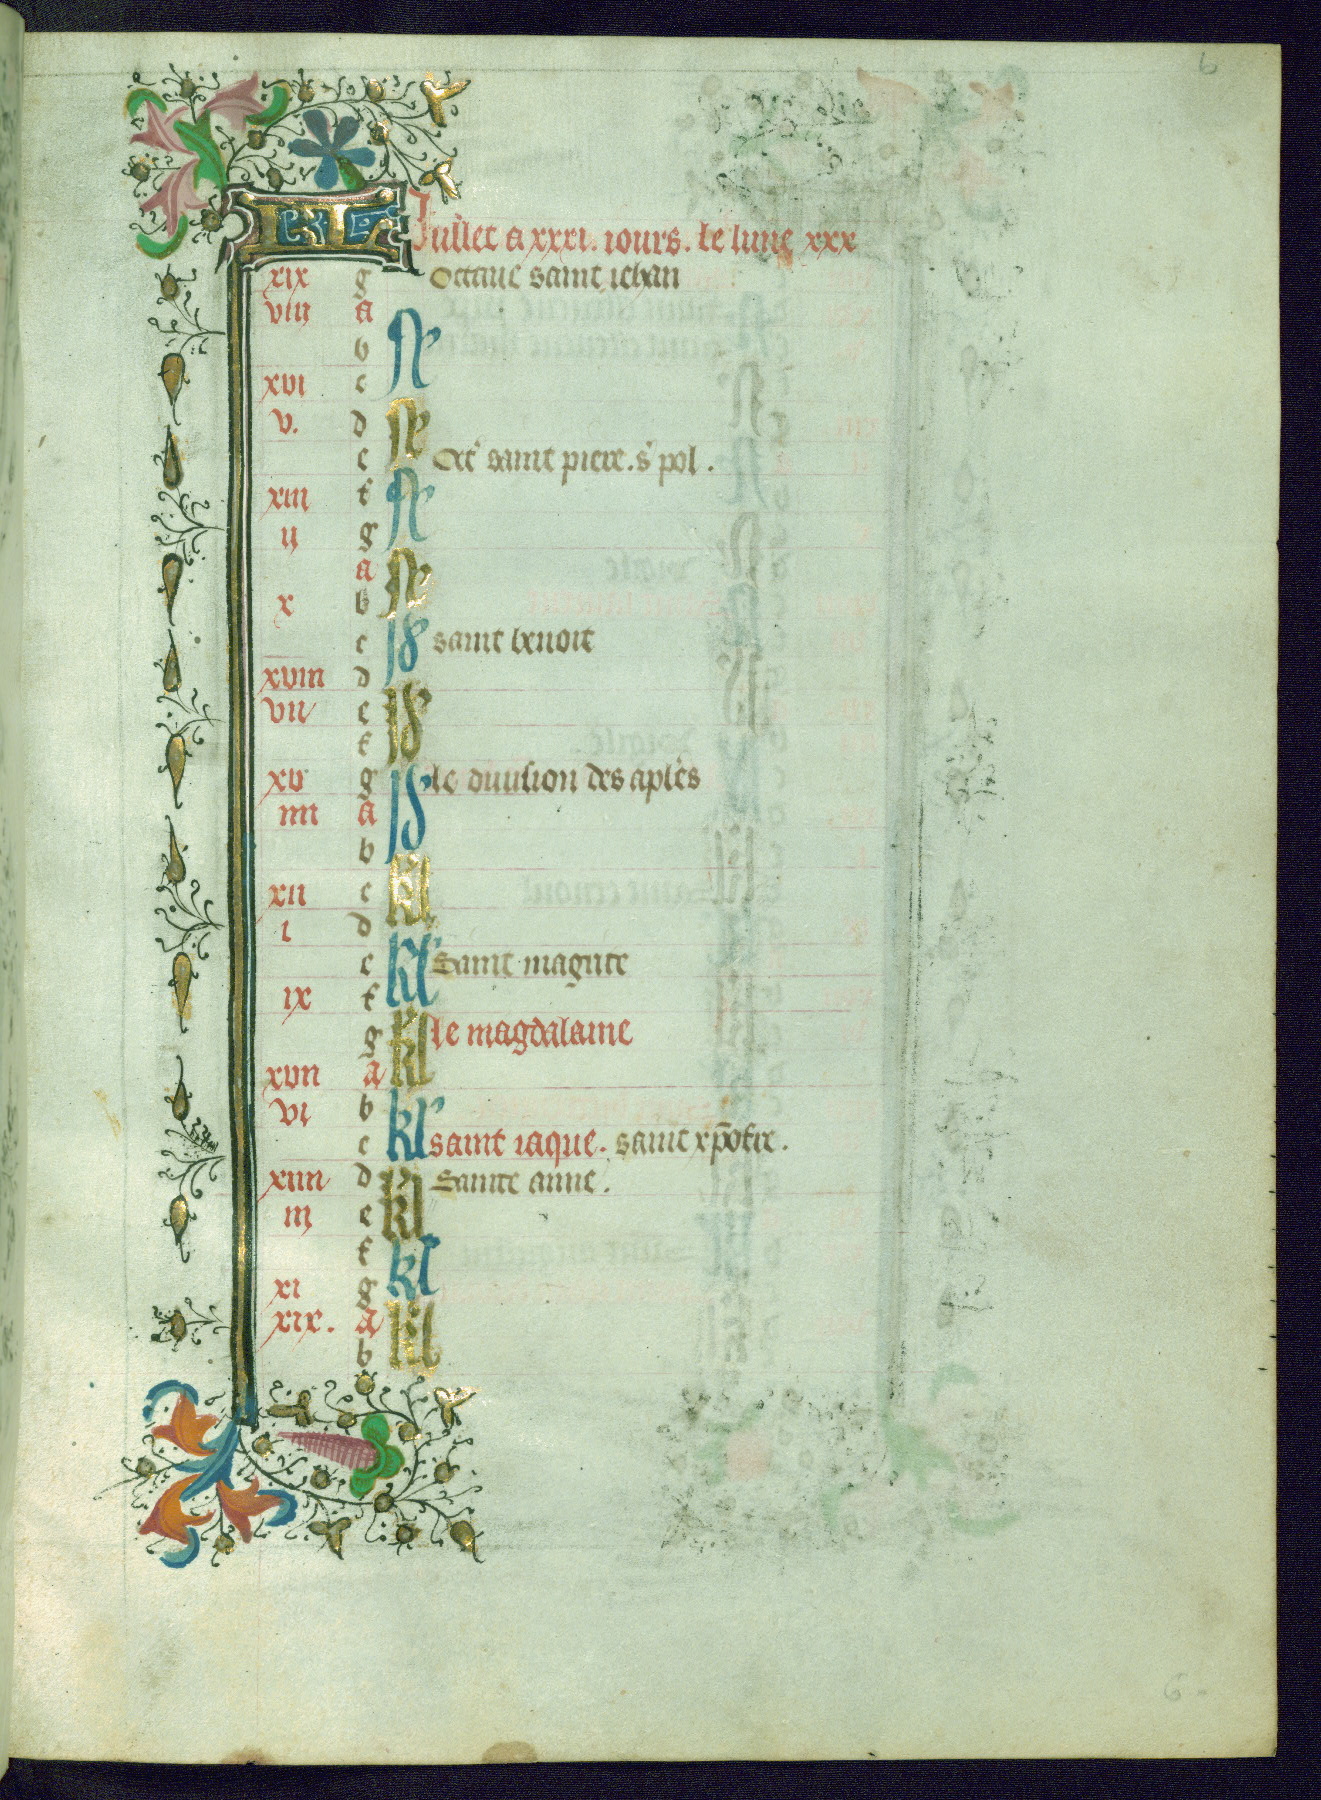 6
KL Juillet a xxxi. iours. le lune xxx
xix g octaue saint iehan
viii a
b N
xvi c
v. d N
e oct saint piere. s pol.
xiii f N
ii g
a N
x b
c Id saint benoit
xviii d
vii e Id
f
xv g Id le diuision des aples
iiii a
b
xii c kl
i d
e kl Sainte magrite
ix f
g kl le magdalaine
xvii a
vi b kl
c saint iaque. saint xpofre.
xiiii d kl Sainte anne.
iii e
f kl
xi g
xix. a kl
b
6